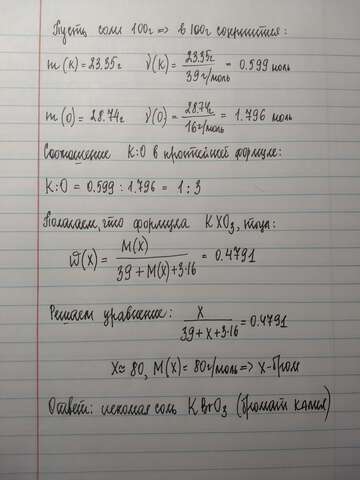 Пусть соли 100г => в 100г содержится:
m(K) = 23.35г ν(K) = 23.35г / 39г/моль = 0.599 моль
m(O) = 28.74г ν(O) = 28.74г / 16г/моль = 1.796 моль
Соотношение K:O в простейшей формуле:
K:O = 0.599 : 1.796 = 1 : 3
Полагаем, что формула KXO₃, тогда:
ω(X) = M(X) / 39 + M(X) + 3·16 = 0.4791
Решаем уравнение: X / 39 + X + 3·16 = 0.4791
X ≈ 80, M(X) = 80г/моль => X - бром
Ответ: искомая соль KBrO₃ (бромат калия)